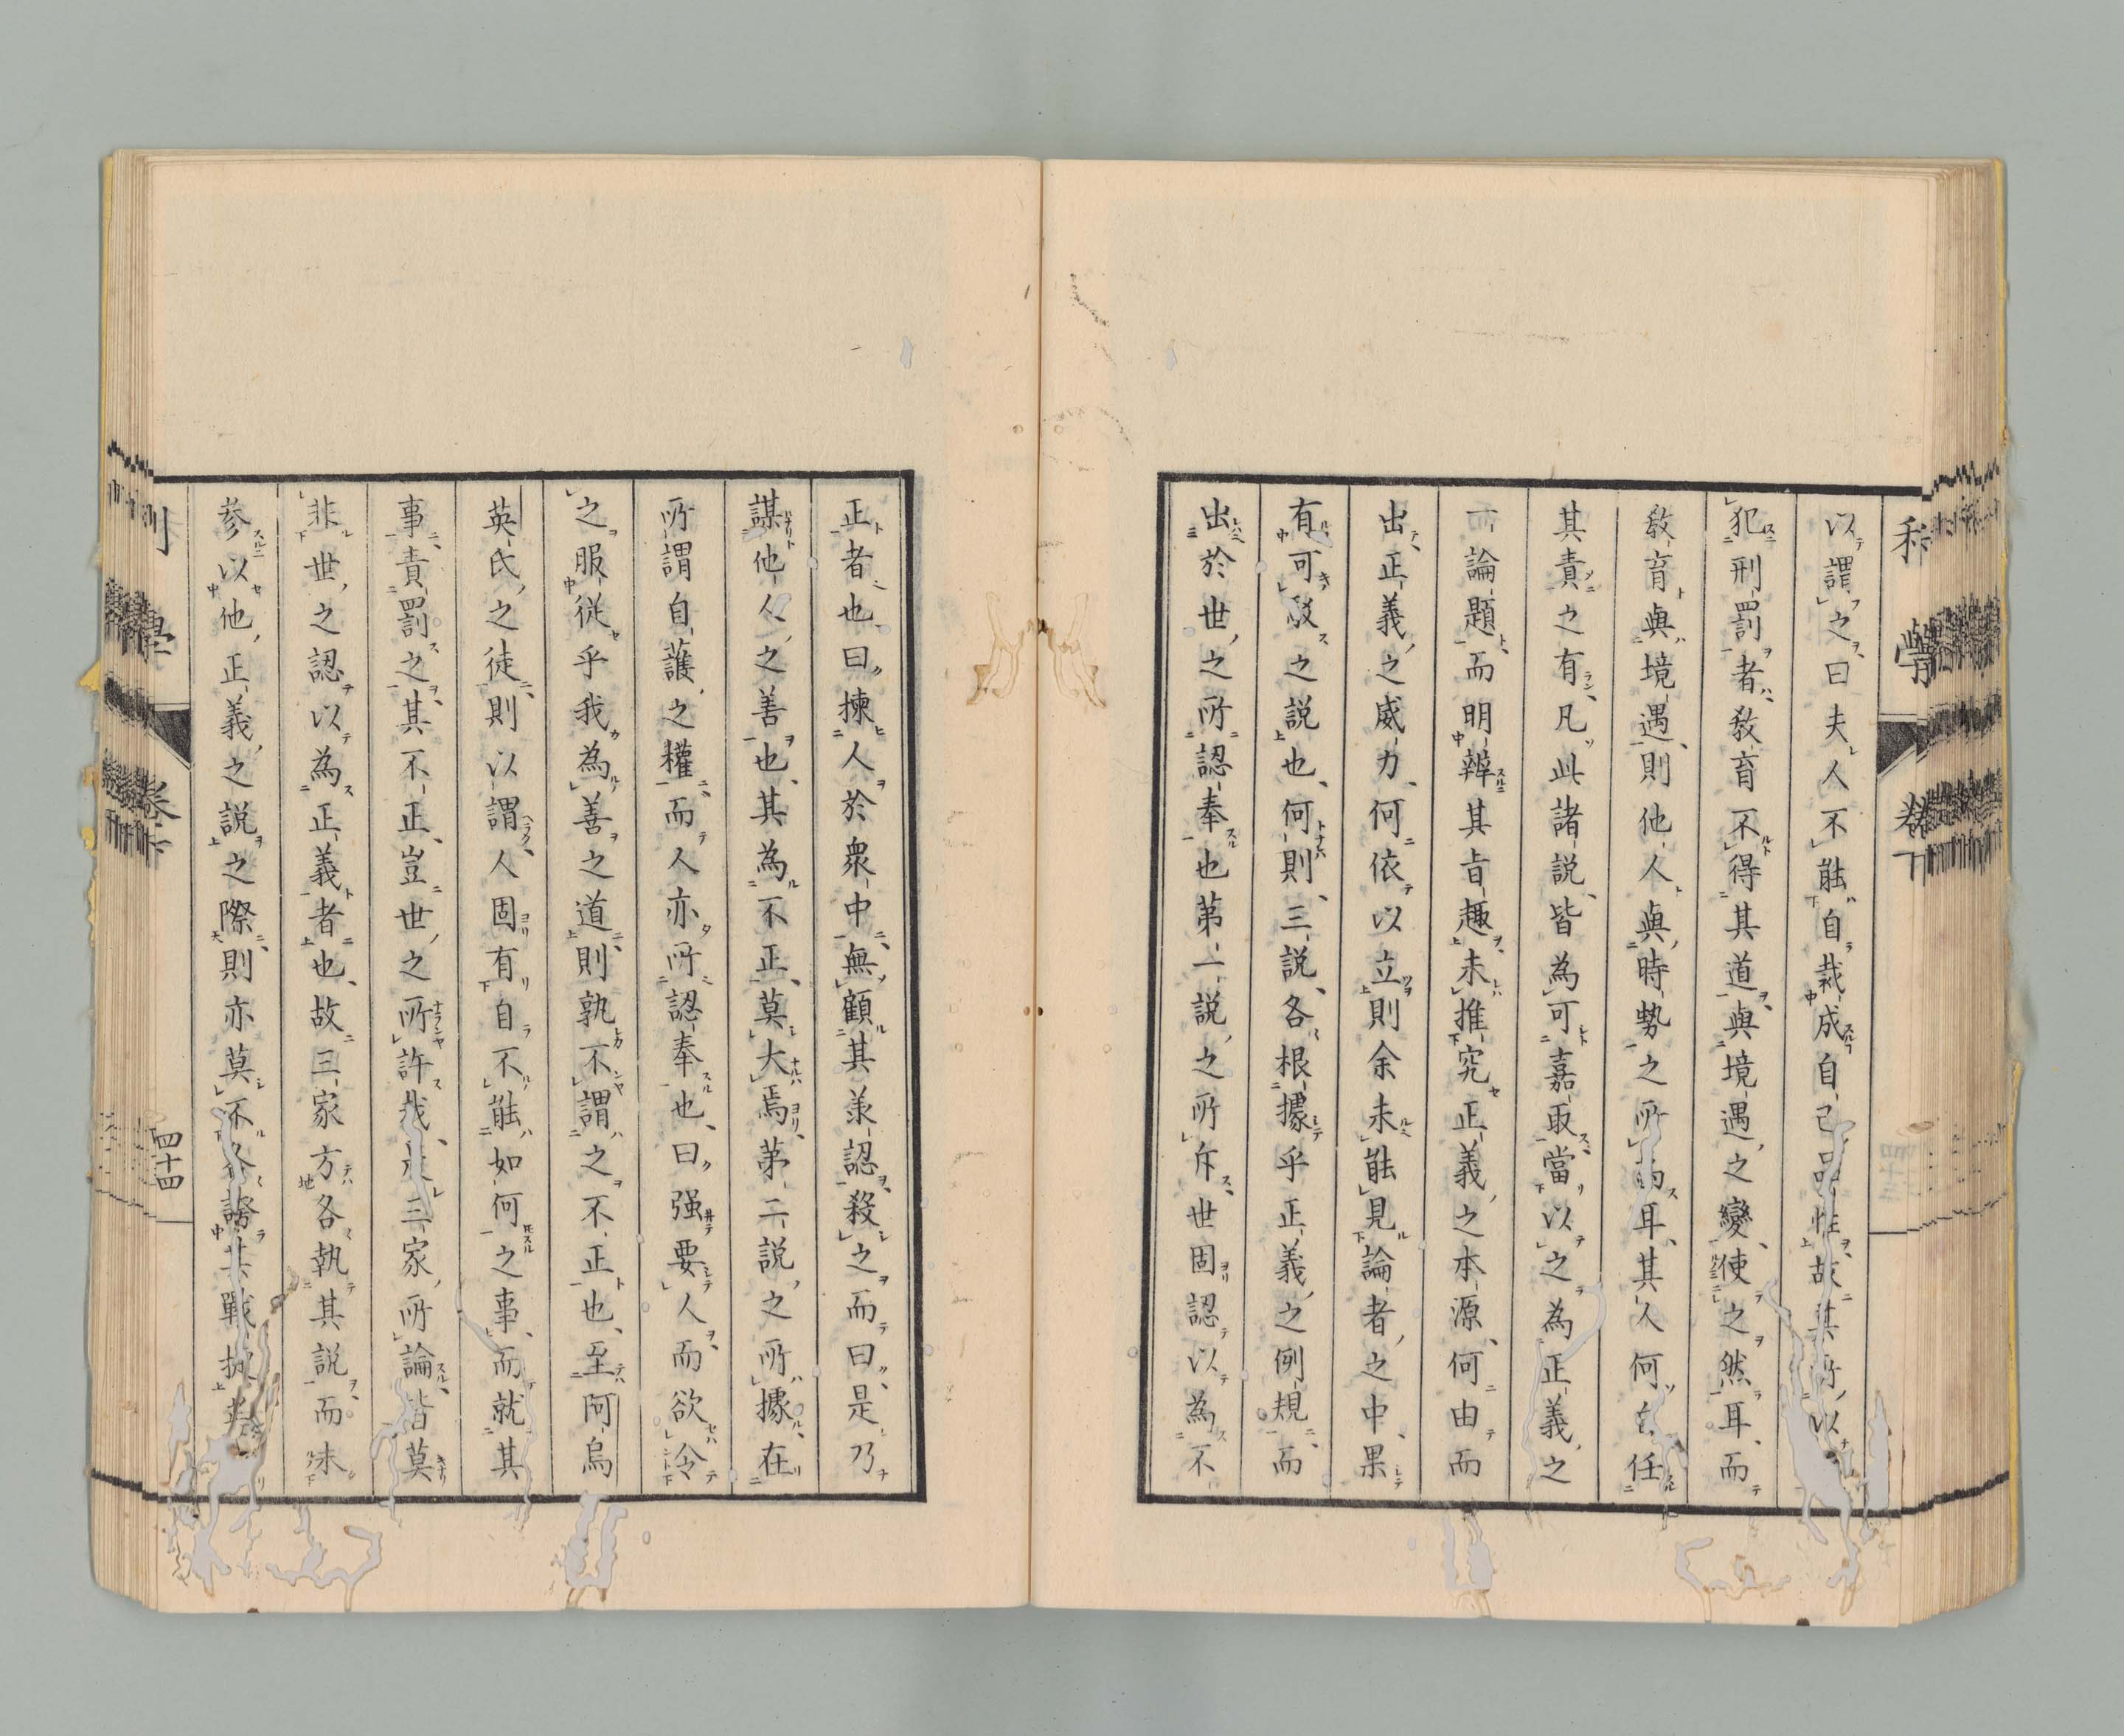 以謂之曰夫人不能自裁成自己品性故其所以
犯刑罰者教育不得其道與境遇之變使之然耳而
教育與境遇則他人與時勢之所為耳其人何任
其責之有凡此諸説皆為可嘉取當以之為正義之
一論題而明辨其旨趣未推究正義之本源何由而
出正義之威力何依以立則余未能見論者之中果
有可駁之説也何則三説各根據乎正義之例規而
出於世之所認奉也第一説之所斥世固認以為不
正者也曰揀人於衆中無顧其兼認殺之而曰是乃
謀他人之善也其為不正莫大焉第二説之所據在
所謂自護之權而人亦所認奉也曰强要人而欲令
之服從乎我為善之道則孰不謂之不正也至阿烏
英氏之徒則以謂人固有自不能如何之事而就其
事責罰之其不正豈世之所許哉三家所論皆莫
非世之認以為正義者也故三家方各執其説而未
參以他正義之説之際則亦莫不誇其戰
利學 卷下
四十四